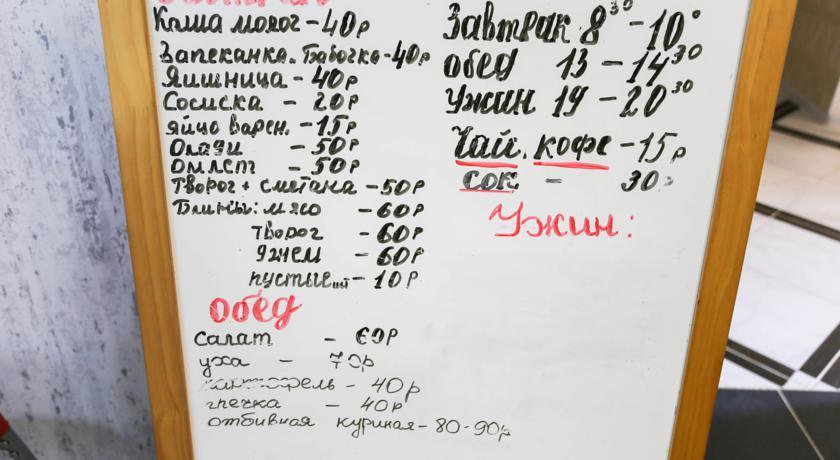 Каша молоч - 40р
Запеканка. Бабочка - 40р
Яишница - 40р
Сосиска - 20р
яйцо варен. - 15р
Олади - 50р
Омлет - 50р
Творог + сметана - 50р
Блины: мясо - 60р
творог - 60р
джем - 60р
пустые шт - 10р
обед
салат - 60р
уха - 70р
картофель - 40р
гречка - 40р
отбивная куриная - 80-90р
Завтрак 8³⁰ - 10⁰
обед 13 - 14³⁰
Ужин 19 - 20³⁰
Чай, кофе - 15р
сок - 30р
Ужин: